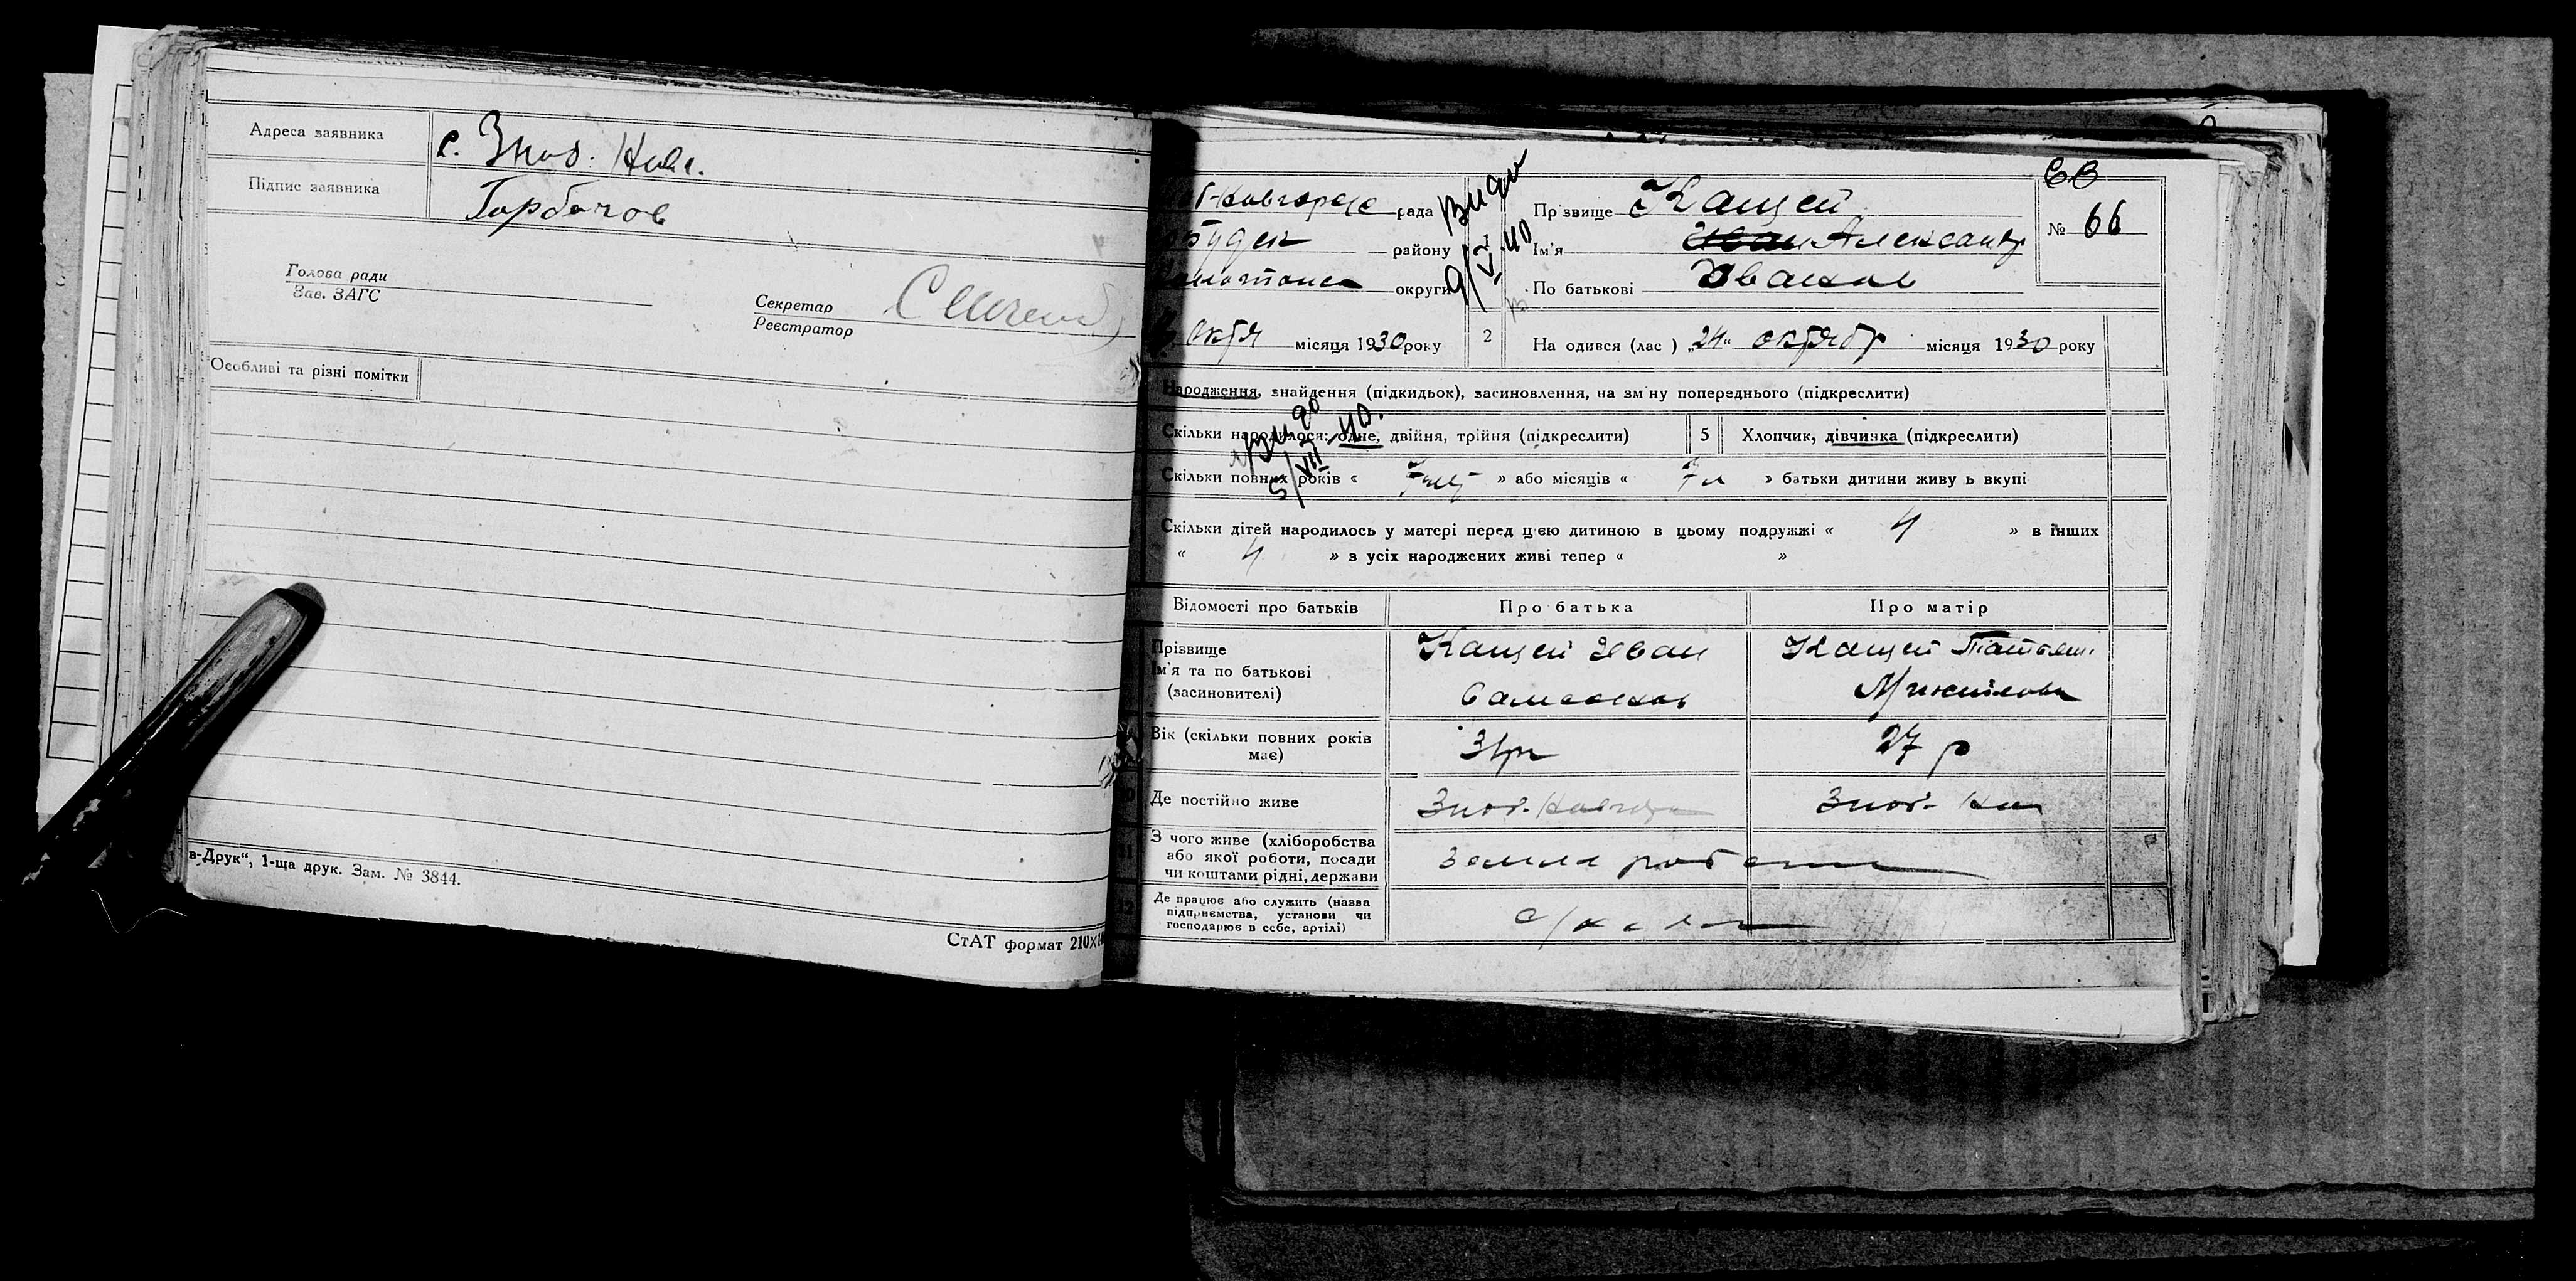 Адреса заявника
с. Зноб. Новг.
Підпис заявника
Горбачов
Голова ради
Зав. ЗАГС
Секретар
Реєстратор
Особливі та різні помітки
в-Друк“, 1-ща друк. Зам. № 3844.
СтАТ формат 210×
68
рада
Видан
району
9/VI 40
округи
Окт місяця 1930 року
Пр звище Кащей
Ім'я Иван Александр
По батькові Иванов
№ 66
2
На одився (лас ) „24“ октябр місяця 1930 року
Народження, знайдення (підкидьок), засиновлення, на зм ну попереднього (підкреслити)
Скільки народилося: одне, двійня, трійня (підкреслити)
5
Хлопчик, дівчинка (підкреслити)
5/VII 40.
Скільки повних років « » або місяців « » батьки дитини живу ь вкупі
Скільки дітей народилось у матері перед цією дитиною в цьому подружжі « 4 » в інших
« 4 » з усіх народжених живі тепер « »
Відомості про батьків
Про батька
Про матір
Прізвище
Ім'я та по батькові
(засиновителі)
Кащей Иван
Самсонов
Кащей Татьяна
Вік (скільки повних років
має)
31
27 р
Де постійно живе
Зноб.
Зноб- Нов
З чого живе (хліборобства
або якої роботи, посади
чи коштами рідні, держави
Земле
Де працює або служить (назва
підприємства, установи чи
господарює в себе, артілі)